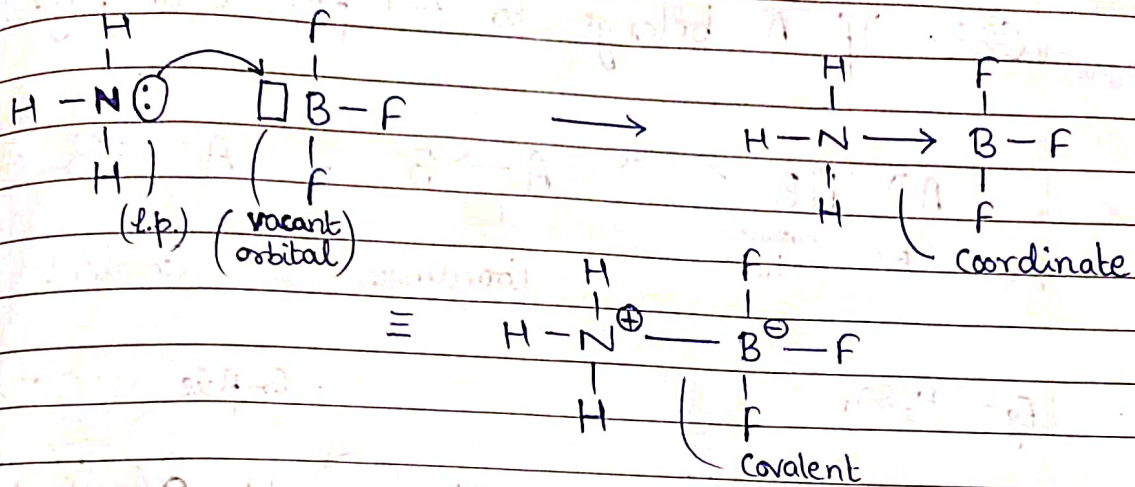 H f
H – N : □ B – F ⟶ H – N ⟶ B – F
H f
(l.p.) (vacant orbital)
H F
H f
Coordinate
H f
≡ H – N⊕ — B⊖ – F
H f
Covalent